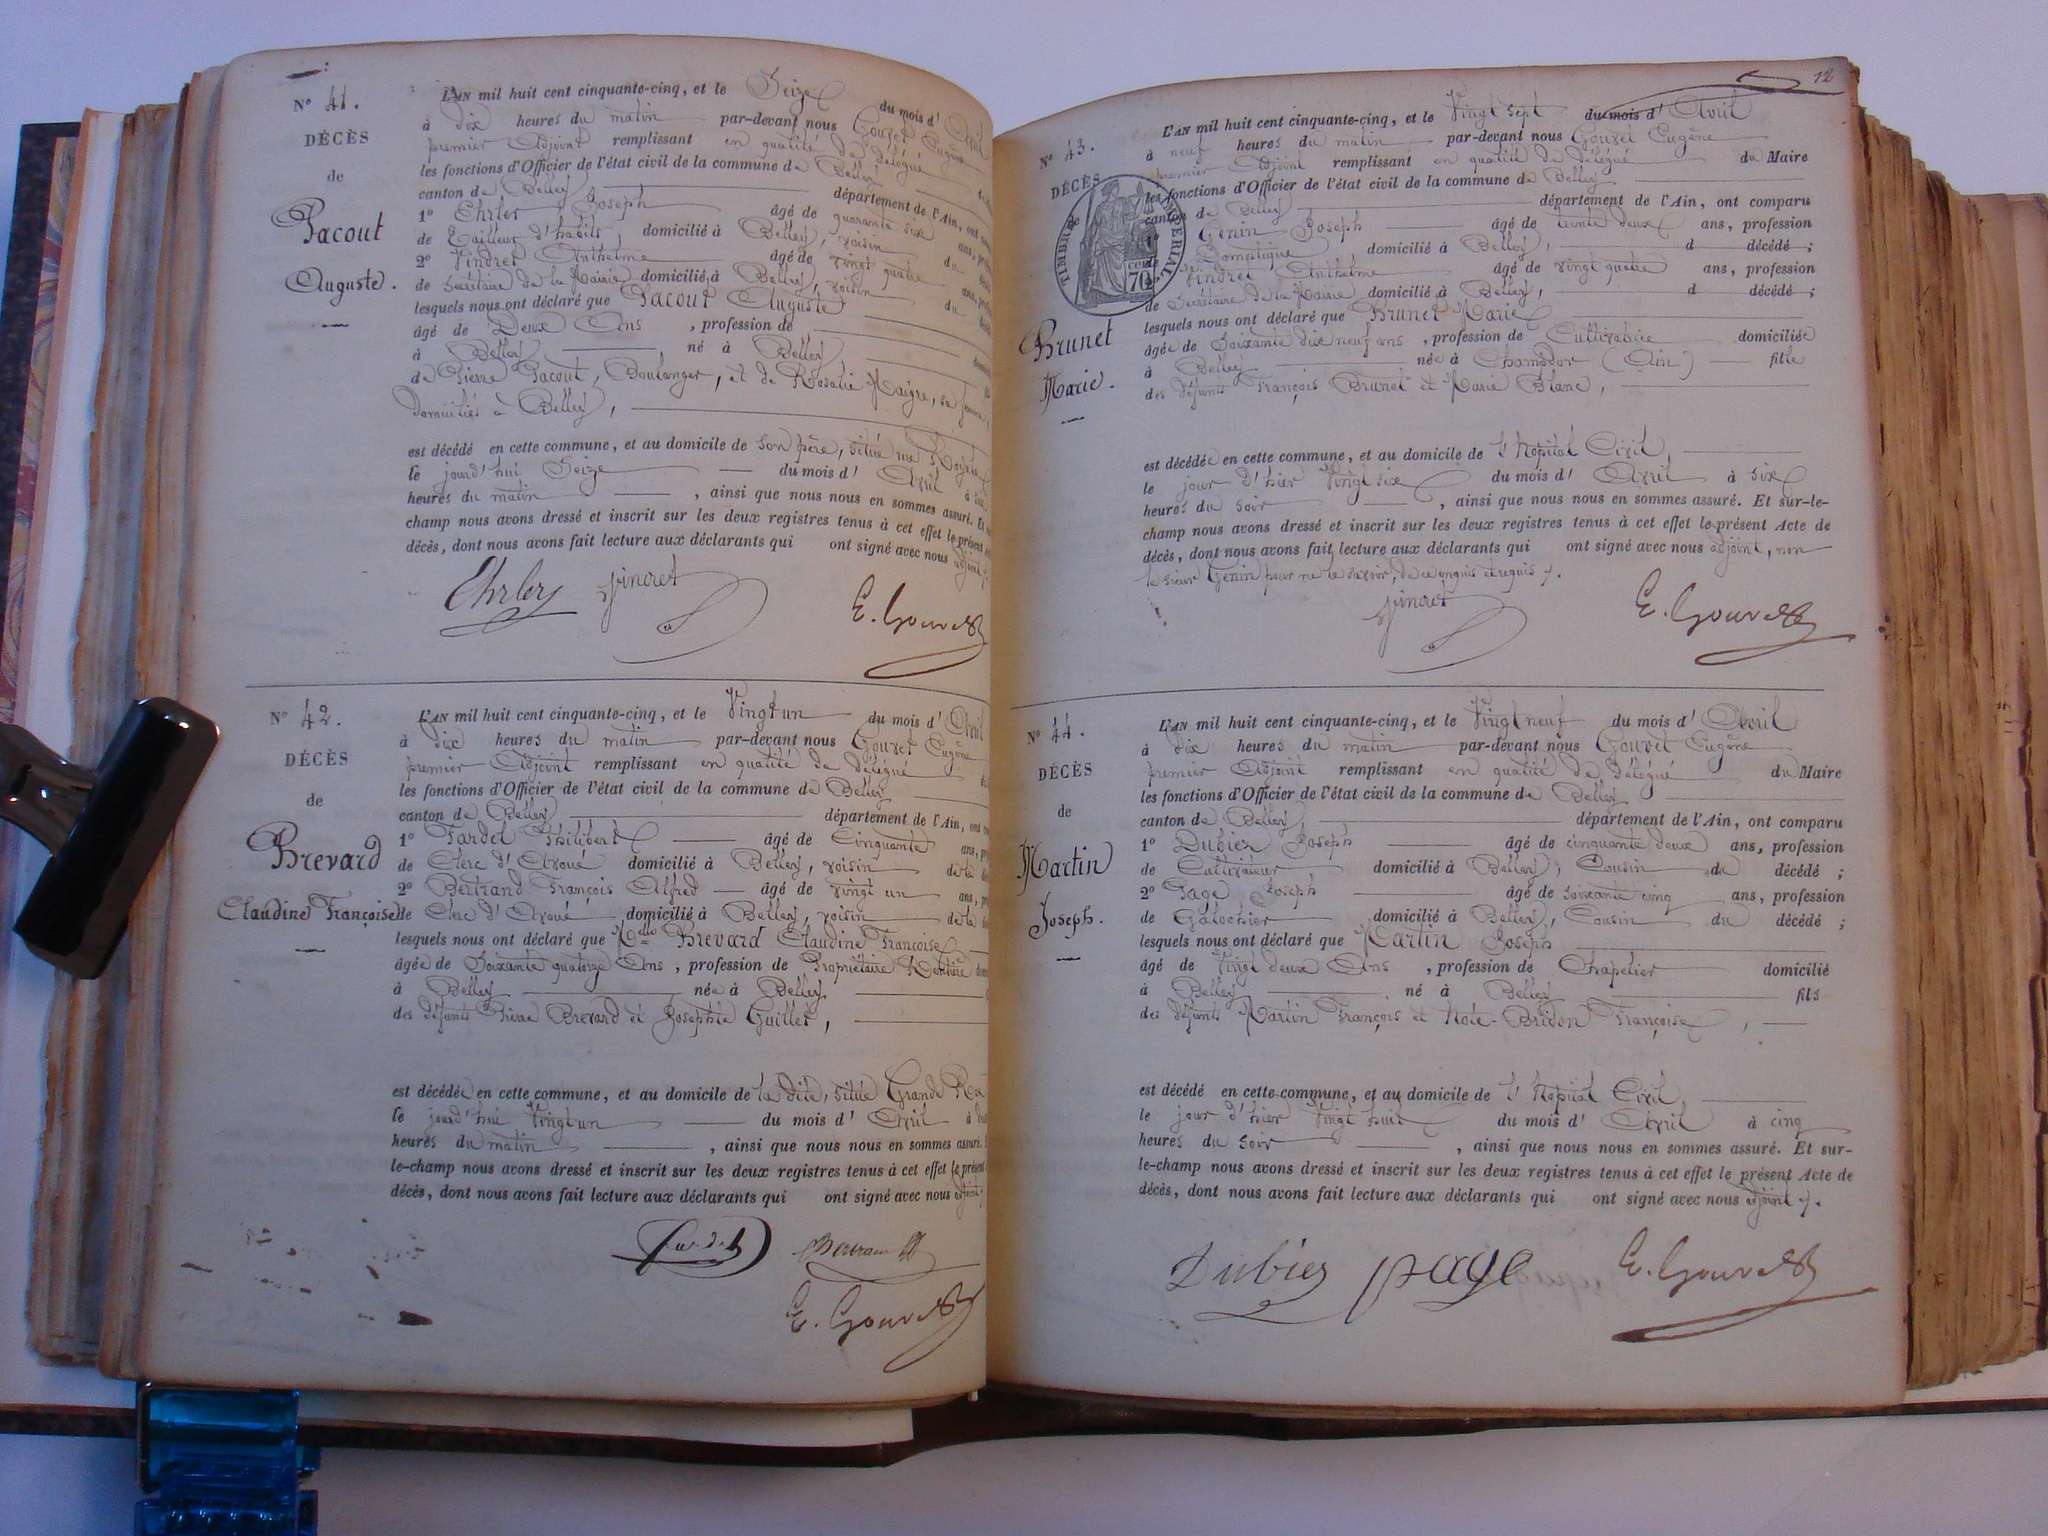 Nº 41.
DÉCÈS
de
Pacout
Auguste.
L'AN mil huit cent cinquante-cinq, et le Seize du mois d' Avril
à dix heures du matin par-devant nous Gouvet Eugène
premier Adjoint remplissant en qualité de délégué
les fonctions d'Officier de l'état civil de la commune de Belley
canton de Belley département de l'Ain, ont
1º Ehrler Joseph âgé de quarante six ans,
de Tailleur d'habits, domicilié à Belley, voisin du
2º Vindret Anthelme âgé de vingt quatre ans,
de Secrétaire de la Mairie domicilié à Belley, voisin du
lesquels nous ont déclaré que Pacout Auguste
âgé de Deux Ans, profession de
à Belley né à Belley
de Pierre Pacout, Boulanger, et de Rosalie Maigre, sa femme,
domiciliés à Belley,
est décédé en cette commune, et au domicile de son père, situé rue
le jourd'hui Seize du mois d' Avril à
heures du matin, ainsi que nous nous en sommes assuré. Et
champ nous avons dressé et inscrit sur les deux registres tenus à cet effet le présent
décès, dont nous avons fait lecture aux déclarants qui ont signé avec nous adjoint.
Ehrler Vindret
E. Gouvet
Nº 42.
DÉCÈS
de
Brevard
Claudine Françoise
L'AN mil huit cent cinquante-cinq, et le Vingt un du mois d' Avril
à dix heures du matin par-devant nous Gouvet Eugène
premier Adjoint remplissant en qualité de délégué
les fonctions d'Officier de l'état civil de la commune de Belley
canton de Belley département de l'Ain, ont
1º Tardet Philibert âgé de Cinquante ans,
de Clerc d'Avoué domicilié à Belley, voisin de la
2º Bertrand François Alfred âgé de vingt un ans,
de Clerc d'Avoué domicilié à Belley, voisin de la
lesquels nous ont déclaré que Melle Brevard Claudine Françoise
âgée de Soixante quatorze Ans, profession de Propriétaire Rentière
à Belley née à Belley
des défunts Pierre Brevard et Josephte Guillet,
est décédée en cette commune, et au domicile de la dite, situé Grande Rue
le jourd'hui Vingt un du mois d' Avril à
heures du matin, ainsi que nous nous en sommes assuré.
le-champ nous avons dressé et inscrit sur les deux registres tenus à cet effet le présent
décès, dont nous avons fait lecture aux déclarants qui ont signé avec nous adjoint.
Bertrand
E. Gouvet
12
Nº 43.
DÉCÈS
TIMBRE IMPÉRIAL
70 c
Brunet
Marie.
L'AN mil huit cent cinquante-cinq, et le Vingt sept du mois d' Avril
à neuf heures du matin par-devant nous Gouvet Eugène
premier Adjoint remplissant en qualité de délégué du Maire
les fonctions d'Officier de l'état civil de la commune de Belley
canton de Belley département de l'Ain, ont comparu
Genin Joseph âgé de trente deux ans, profession
Domestique domicilié à Belley, d décédé ;
Vindret Anthelme âgé de vingt quatre ans, profession
de Secrétaire de la Mairie domicilié à Belley, d décédé ;
lesquels nous ont déclaré que Brunet Marie
âgée de Soixante dix neuf ans, profession de Cultivatrice domiciliée
à Belley née à Champdor (Ain) fille
des défunts François Brunet et Marie Blanc,
est décédée en cette commune, et au domicile de l'Hopital Civil,
le jour d'hier Vingt six du mois d' Avril à six
heures du soir, ainsi que nous nous en sommes assuré. Et sur-le-
champ nous avons dressé et inscrit sur les deux registres tenus à cet effet le présent Acte de
décès, dont nous avons fait lecture aux déclarants qui ont signé avec nous adjoint, non
le sieur Genin pour ne le savoir, de ce enquis et requis.
Vindret
E. Gouvet
Nº 44.
DÉCÈS
de
Martin
Joseph.
L'AN mil huit cent cinquante-cinq, et le Vingt neuf du mois d' Avril
à dix heures du matin par-devant nous Gouvet Eugène
premier Adjoint remplissant en qualité de délégué du Maire
les fonctions d'Officier de l'état civil de la commune de Belley
canton de Belley, département de l'Ain, ont comparu
1º Dubiez Joseph âgé de cinquante deux ans, profession
de Cultivateur domicilié à Belley, Cousin du décédé ;
2º Page Joseph âgé de soixante cinq ans, profession
de Galochier domicilié à Belley, Cousin du décédé ;
lesquels nous ont déclaré que Martin Joseph
âgé de Vingt deux Ans, profession de Chapelier domicilié
à Belley né à Belley fils
des défunts Martin François et Noté-Bridon Françoise,
est décédé en cette commune, et au domicile de l'Hopital Civil,
le jour d'hier Vingt huit du mois d' Avril à cinq
heures du soir, ainsi que nous nous en sommes assuré. Et sur-
le-champ nous avons dressé et inscrit sur les deux registres tenus à cet effet le présent Acte de
décès, dont nous avons fait lecture aux déclarants qui ont signé avec nous adjoint.
Dubiez page E. Gouvet